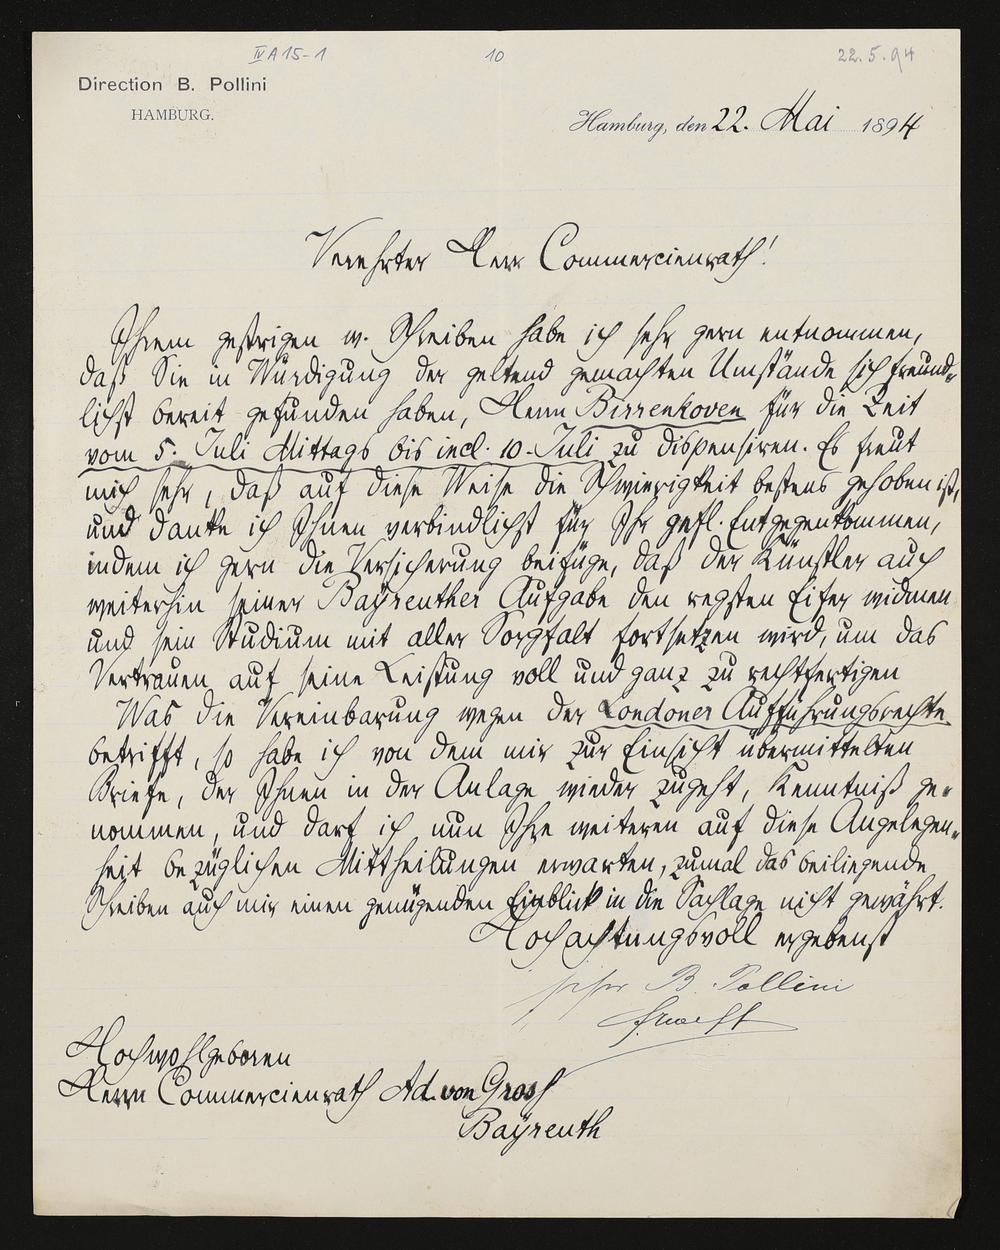 IV A 15-1 10 22.5.94
Direction B. Pollini
HAMBURG.
Hamburg, den 22. Mai 1894
Verehrter Herr Commercienrath!
Ihrem gestrigen w. Schreiben habe ich sehr gern entnommen,
daß Sie in Würdigung der geltend gemachten Umstände sich freund-
lichst bereit gefunden haben, Herrn Birrenkoven für die Zeit
vom 5. Juli Mittags bis incl. 10. Juli zu dispensiren. Es freut
mich sehr, daß auf diese Weise die Schwierigkeit bestens gehoben ist,
und danke ich Ihnen verbindlichst für Ihr gefl. Entgegenkommen,
indem ich gern die Versicherung beifüge, daß der Künstler auch
weiterhin seiner Bayreuther Aufgabe den regsten Eifer widmen
und sein Studium mit aller Sorgfalt fortsetzen wird, um das
Vertrauen auf seine Leistung voll und ganz zu rechtfertigen
Was die Vereinbarung wegen der Londoner Aufführungsrechte
betrifft, so habe ich von dem mir zur Einsicht übermittelten
Briefe, der Ihnen in der Anlage wieder zugeht, Kenntniß ge-
nommen, und darf ich nun Ihre weiteren auf diese Angelegen-
heit bezüglichen Mittheilungen erwarten, zumal das beiliegende
Schreiben auch mir einen genügenden Einblick in die Sachlage nicht gewährt.
Hochachtungsvoll ergebenst
B. Pollini
Hochwohlgeboren
Herrn Commercienrath Ad. von Gross
Bayreuth